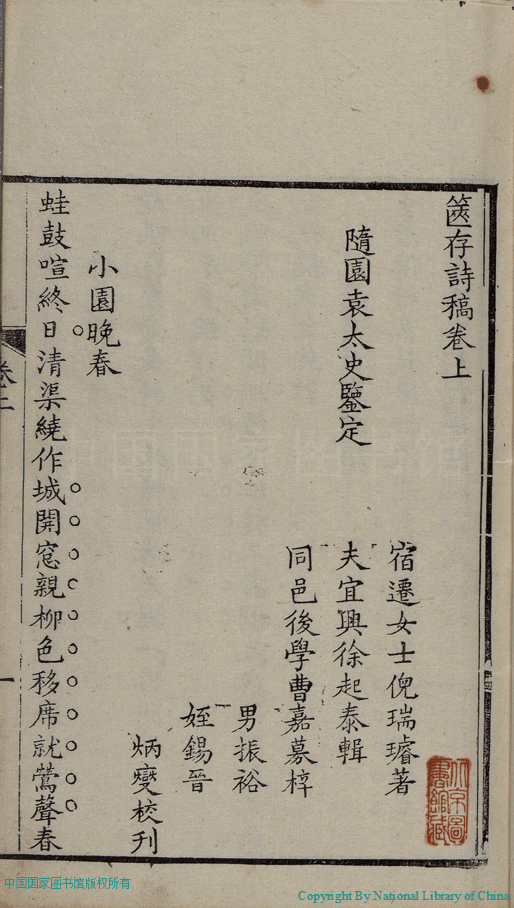 篋存詩稿卷上
隨園袁太史鑒定
宿遷女士倪瑞璿著
夫宜興徐起泰輯
同邑後學曹嘉慕梓
男振裕
姪錫晉
炳燮校刊
小園晚春
蛙鼓喧終日清渠繞作城開窓親柳色移席就鶯聲春
卷上
一
北京圖書館藏
中国国家图书馆版权所有
Copyright By National Library of China